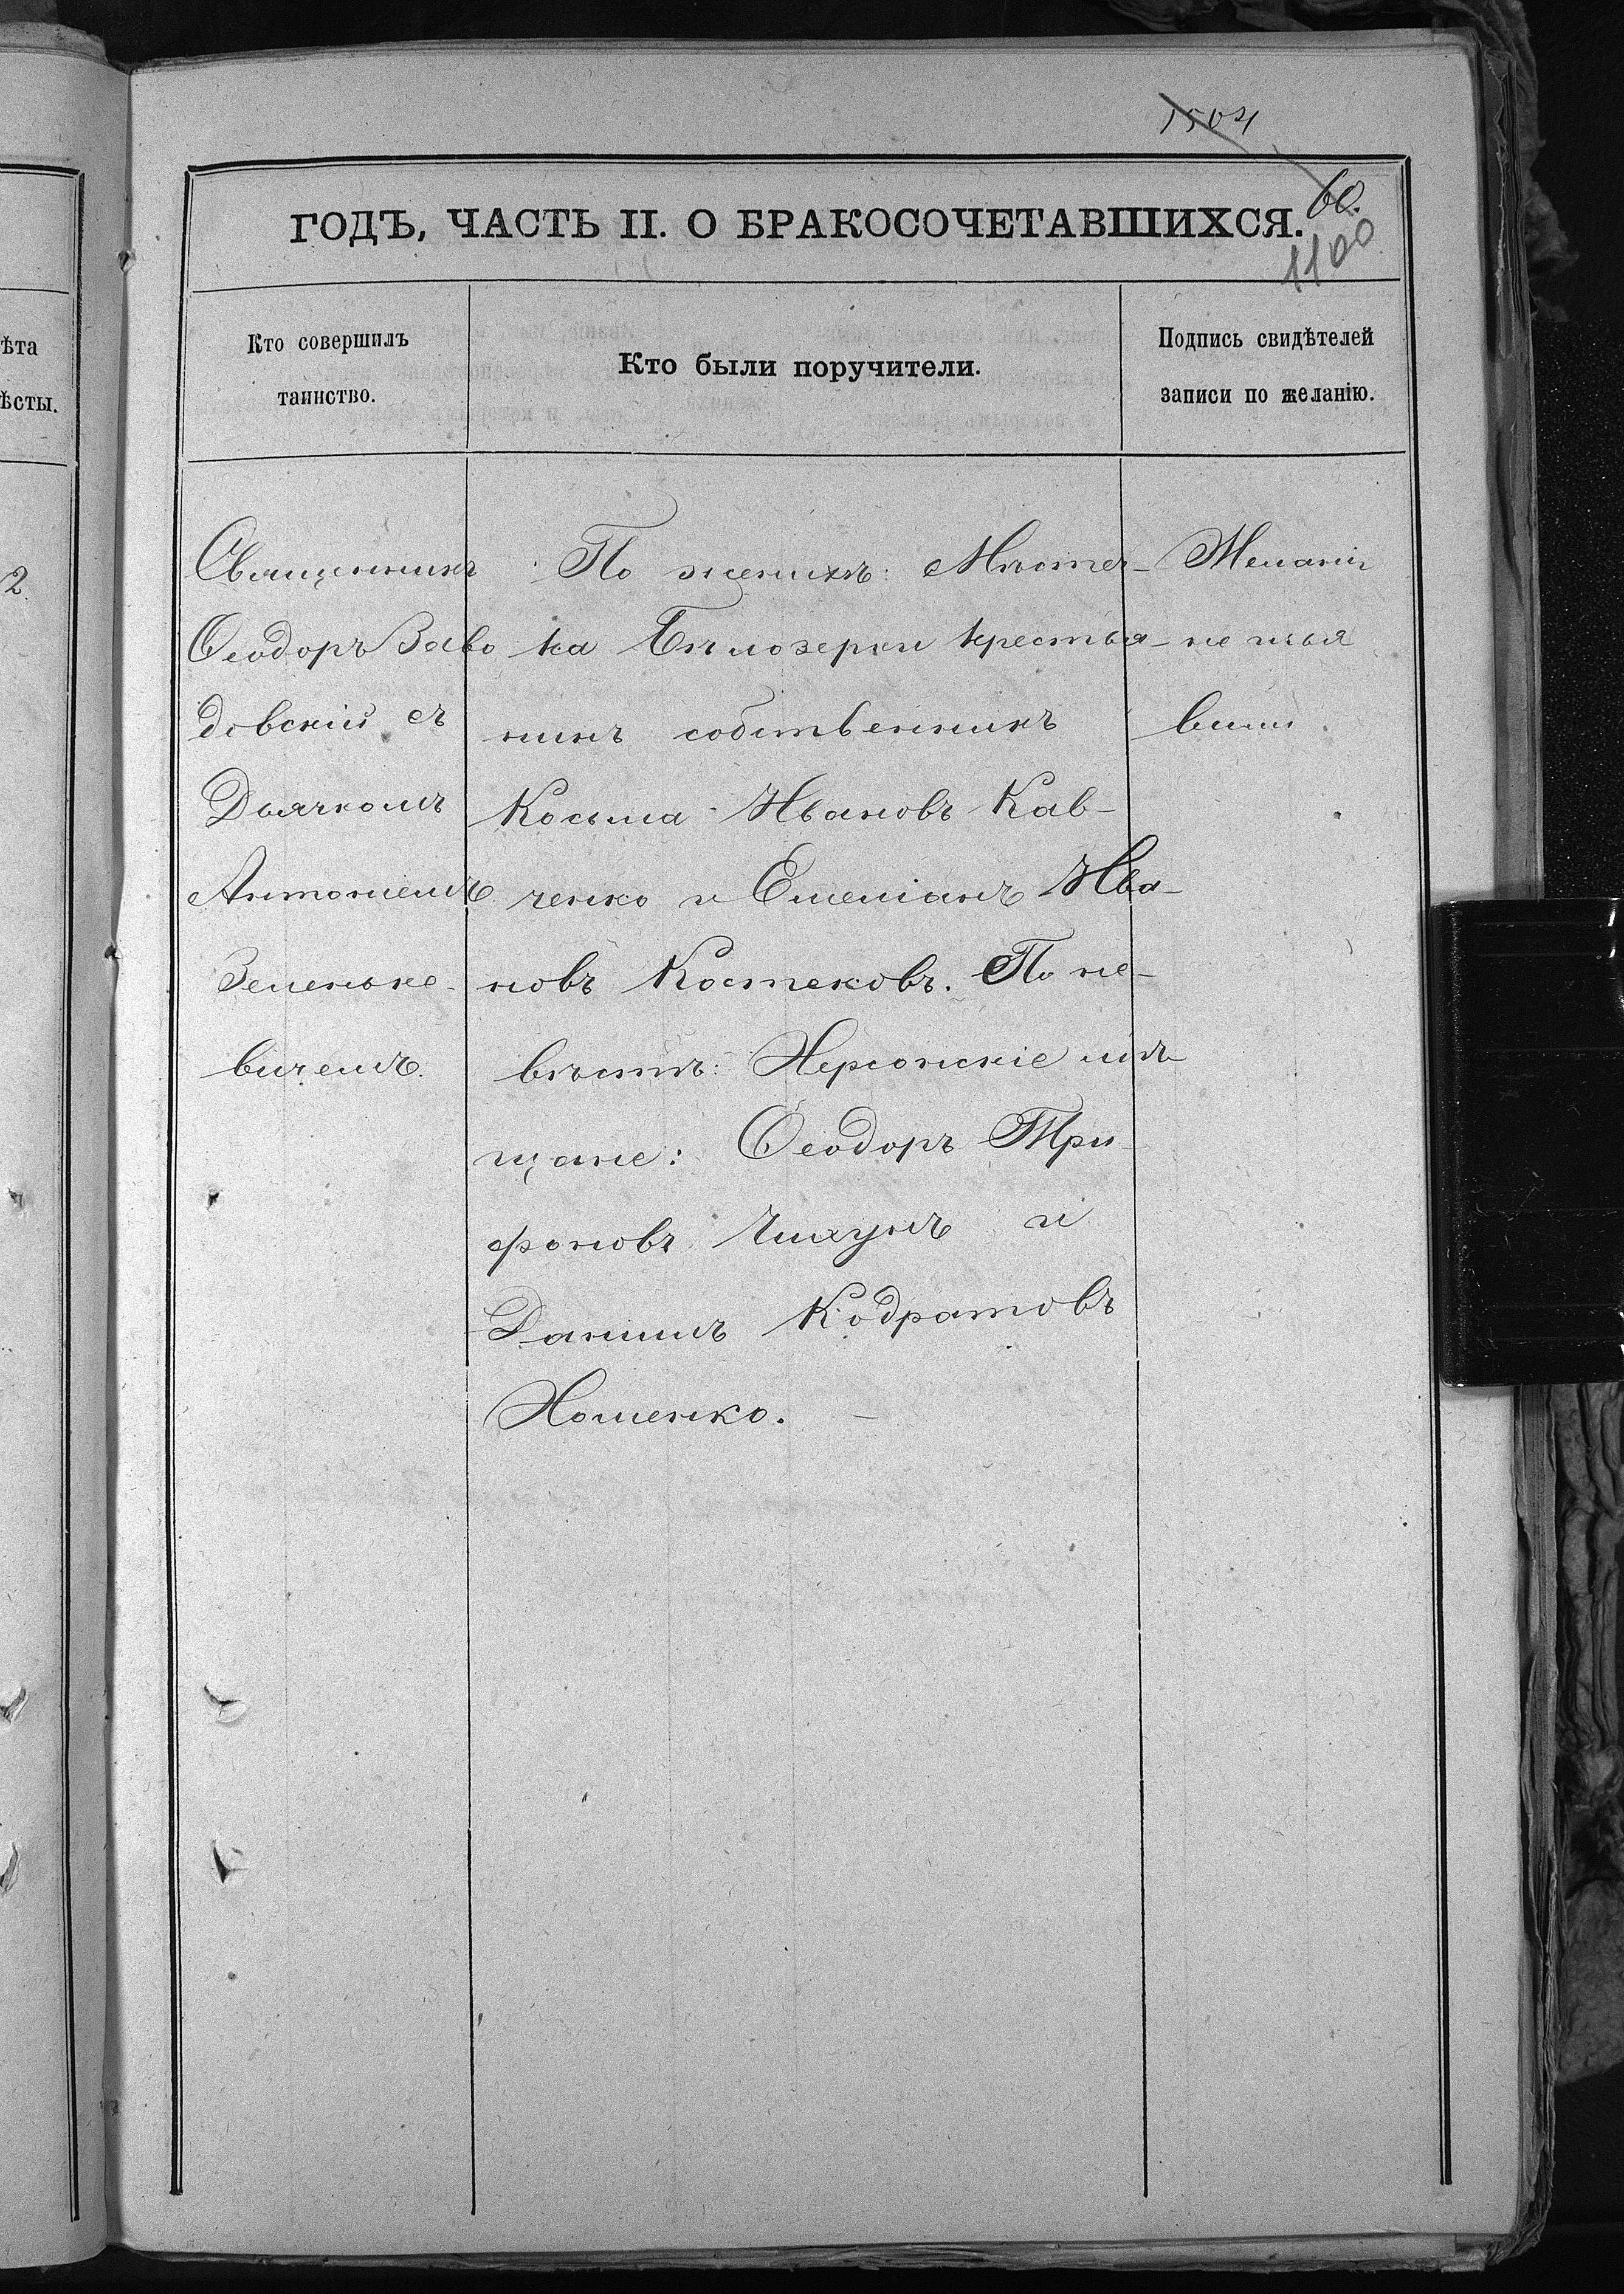 1504
60.
1100
ГОДЪ, ЧАСТЬ II. О БРАКОСОЧЕТАВШИХСЯ.
Кто совершилъ
таинство.
Кто были поручители.
Подпись свидѣтелей
записи по желанію.
ѣта
ѣсты.
2.
Священникъ
Ѳеодоръ Заво
довскій съ
Дьячкомъ
Антоніемъ
Зеленьке-
вичемъ.
По женихѣ: Мѣстеч-
ка Бѣлозерки крестья-
нинъ собственникъ
Косьма Ивановъ Кав-
ченко и Емеліанъ Ива-
новъ Костековъ. По не-
вѣстѣ: Херсонскіе мѣ-
щане: Ѳеодоръ Три
фоновъ Чихунъ и
Даніилъ Кодратовъ
Хоменко.
Желаній
не изъя
вили